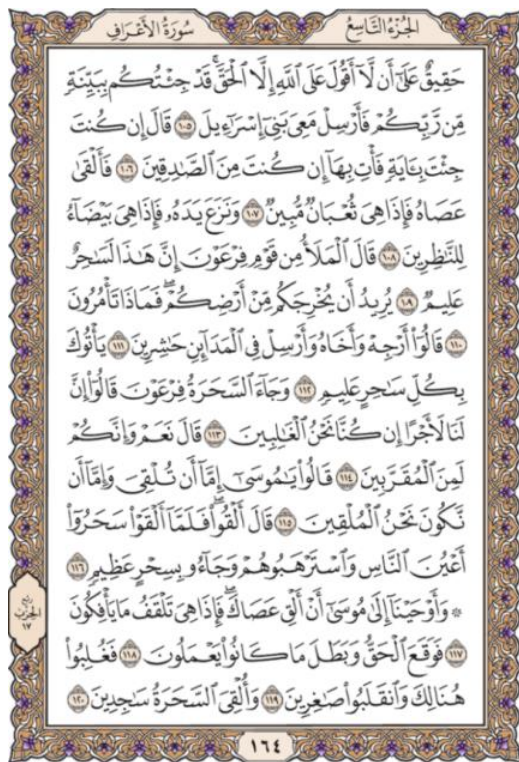 سُورَةُ الأَعْرَافِ
الجُزْءُ التَّاسِعُ
حَقِيقٌ عَلَىٰٓ أَن لَّآ أَقُولَ عَلَى ٱللَّهِ إِلَّا ٱلْحَقَّۚ قَدْ جِئْتُكُم بِبَيِّنَةٍ
مِّن رَّبِّكُمْ فَأَرْسِلْ مَعِىَ بَنِىٓ إِسْرَٰٓءِيلَ ١٠٥ قَالَ إِن كُنتَ
جِئْتَ بِـَٔايَةٍ فَأْتِ بِهَآ إِن كُنتَ مِنَ ٱلصَّٰدِقِينَ ١٠٦ فَأَلْقَىٰ
عَصَاهُ فَإِذَا هِىَ ثُعْبَانٌ مُّبِينٌ ١٠٧ وَنَزَعَ يَدَهُۥ فَإِذَا هِىَ بَيْضَآءُ
لِلنَّٰظِرِينَ ١٠٨ قَالَ ٱلْمَلَأُ مِن قَوْمِ فِرْعَوْنَ إِنَّ هَٰذَا لَسَٰحِرٌ
عَلِيمٌ ١٠٩ يُرِيدُ أَن يُخْرِجَكُم مِّنْ أَرْضِكُمْۖ فَمَاذَا تَأْمُرُونَ
١١٠ قَالُوٓا۟ أَرْجِهْ وَأَخَاهُ وَأَرْسِلْ فِى ٱلْمَدَآئِنِ حَٰشِرِينَ ١١١ يَأْتُوكَ
بِكُلِّ سَٰحِرٍ عَلِيمٍ ١١٢ وَجَآءَ ٱلسَّحَرَةُ فِرْعَوْنَ قَالُوٓا۟ إِنَّ
لَنَا لَأَجْرًا إِن كُنَّا نَحْنُ ٱلْغَٰلِبِينَ ١١٣ قَالَ نَعَمْ وَإِنَّكُمْ
لَمِنَ ٱلْمُقَرَّبِينَ ١١٤ قَالُوا۟ يَٰمُوسَىٰٓ إِمَّآ أَن تُلْقِىَ وَإِمَّآ أَن
نَّكُونَ نَحْنُ ٱلْمُلْقِينَ ١١٥ قَالَ أَلْقُوا۟ۖ فَلَمَّآ أَلْقَوْا۟ سَحَرُوٓا۟
أَعْيُنَ ٱلنَّاسِ وَٱسْتَرْهَبُوهُمْ وَجَآءُو بِسِحْرٍ عَظِيمٍ ١١٦
۞ وَأَوْحَيْنَآ إِلَىٰ مُوسَىٰٓ أَنْ أَلْقِ عَصَاكَۖ فَإِذَا هِىَ تَلْقَفُ مَا يَأْفِكُونَ
١١٧ فَوَقَعَ ٱلْحَقُّ وَبَطَلَ مَا كَانُوا۟ يَعْمَلُونَ ١١٨ فَغُلِبُوا۟
هُنَالِكَ وَٱنقَلَبُوا۟ صَٰغِرِينَ ١١٩ وَأُلْقِىَ ٱلسَّحَرَةُ سَٰجِدِينَ ١٢٠
ربع
الحزب
١٧
١٦٤